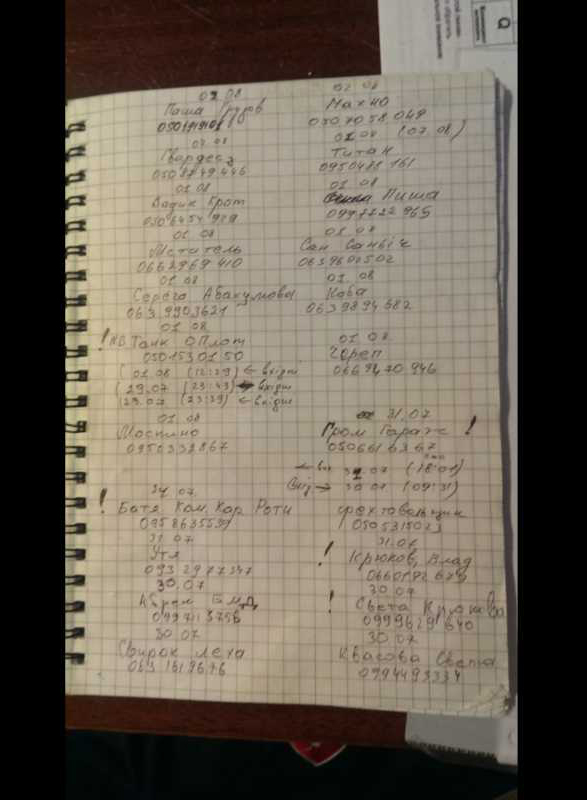 01 08
Паша Грузов
0501919101
04.08
Гвардеец
0508849446
01 08
Вадик Брат
0506454989
01 08
Мститель
0663969410
01 08
Серёга Абакумовы
0639903621
01 08
! КВ Танк ОПлот
0501530150
(01.08 (12:29) ← вхідн
(29.07 (23:43) вхідн
(29.07 (23:39) ← вхідн
01 08
Мостино
0950332867
31 07.
! Батя Ком. Кор Роти
0958635599
31 07
Утя
0932977347
30.07
0997113756
30.07
Свирок Леха
0631619676
02 08
Мах40
0507058049
01.08 (07.08)
Титан
0950488161
01. 08
Миша
0997722965
01 08
Сан Саныч
0639602502
01. 08
Кова
0639894582
01 08
Череп
0669470946
31.07
Гром Гараж !
0506616367
← 31.07 (18:01)
→ 30 07 (09:31)
0505315073
31.07
! Крюков, Влад
0660192679
30 07
! Света Крюкова
0999629640
30 07
Квасова Света
0994493334